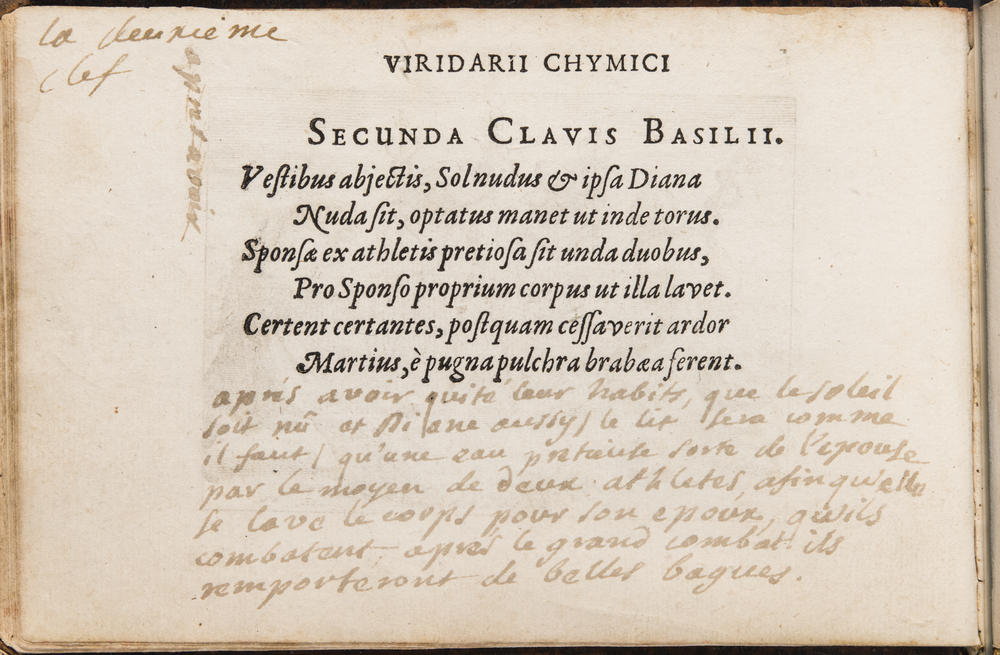 la deuxieme
clef
VIRIDARII CHYMICI
SECUNDA CLAVIS BASILII.
Veſtibus abjectis, Sol nudus & ipſa Diana
Nuda ſit, optatus manet ut inde torus.
Sponſæ ex athletis pretioſa ſit unda duobus,
Pro Sponſo proprium corpus ut illa lavet.
Certent certantes, poſtquam ceſſaverit ardor
Martius, è pugna pulchra brabæa ferent.
aprés avoir quité leur habits, que le soleil
soit nû et Diane aussy/ le lit sera comme
il faut/ qu'une eau pretieuse sorte de l'epouse
par le moyen de deux athletes, afin qu'elle
se lave le corps pour son epoux, qu'ils
combatent aprés le grand combat ils
remporteront de belles bagues.